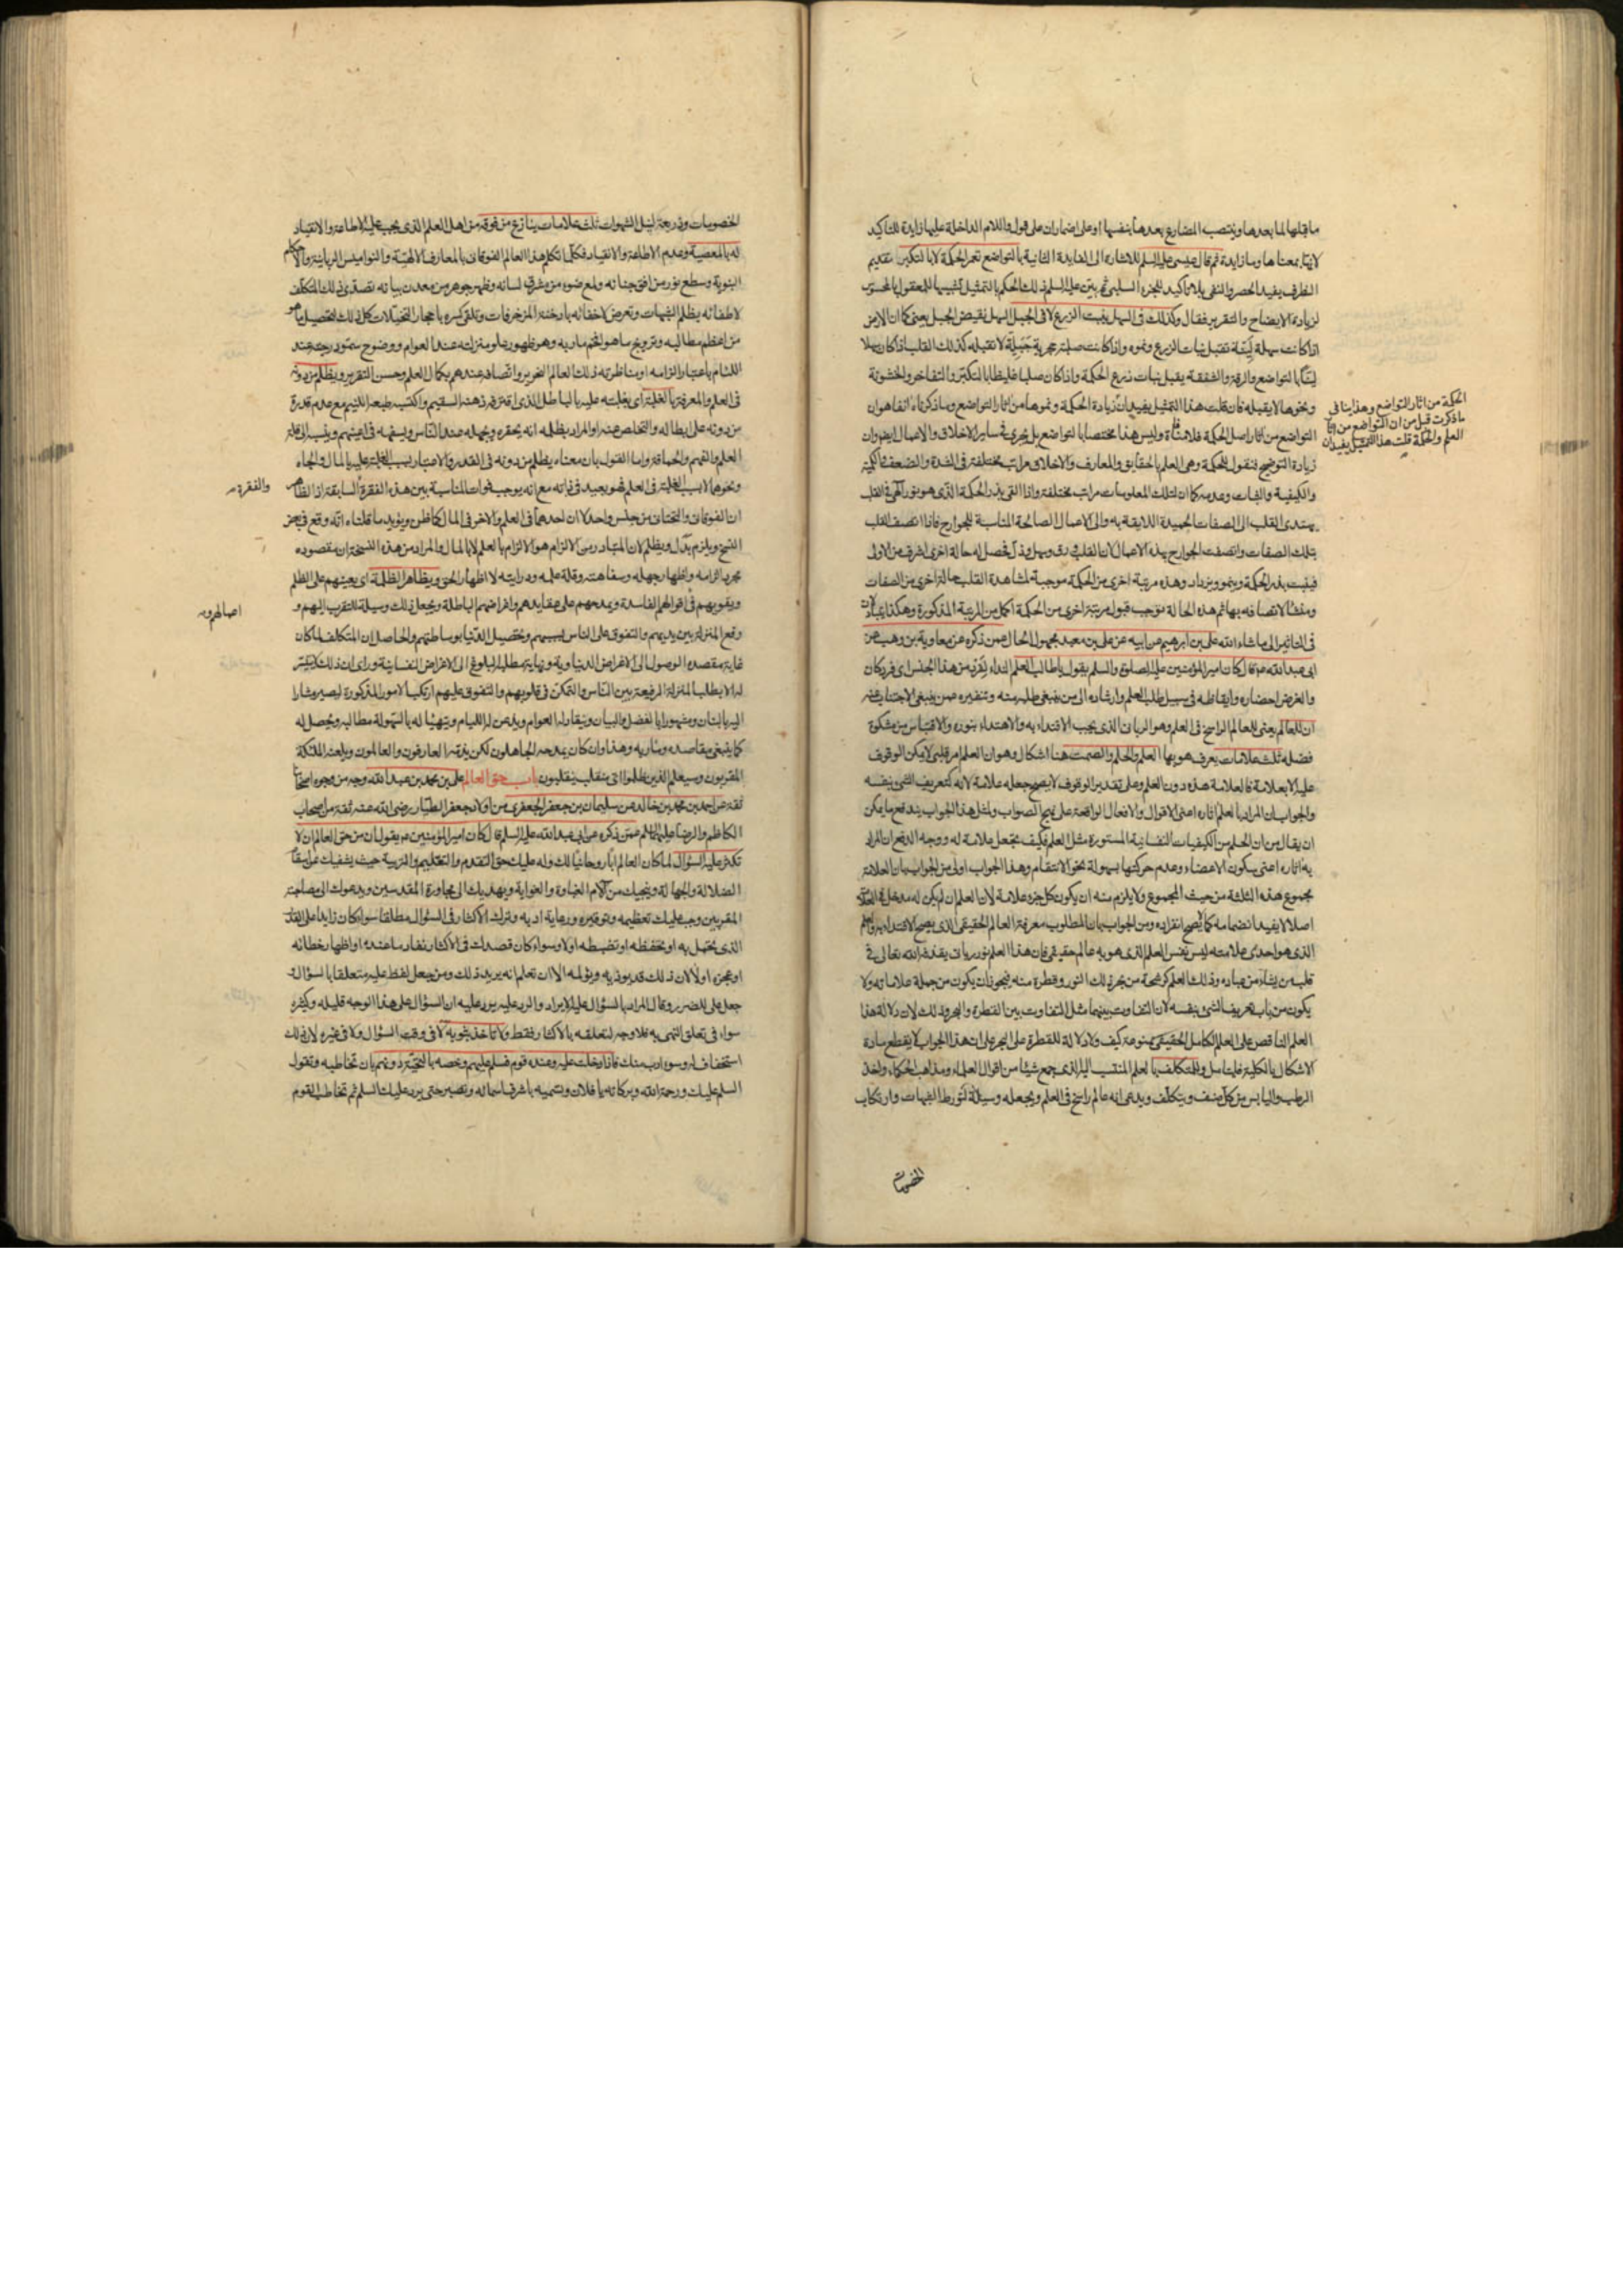 ما قبلها لما بعدها وينتصب المضارع بعدها بنفسها او على اضمار ان على قول واللام الداخلة عليها زايدة للتاكيد
لانها بمعناها وما زايدة ثم قال عيسى عليه السلم للاشارة الى الفايدة الثانية بالتواضع تعمر الحكمة لا بالتكبر تقديم
الظرف يفيد الحصر والنفى بلا تاكيد للجزء السلبى ثم بين عليه السلم ذلك الحكم بالتمثيل تشبيها للمعقول بالمحسوس
لزيادة الايضاح والتقرير فقال وكذلك فى السهل ينبت الزرع لا فى الجبل السهل نقيض الجبل يعنى كما ان الارض
اذا كانت سهلة لينة تقبل نبات الزرع ونموه واذا كانت صلبة حجرية جبلية لا تقبله كذلك القلب اذا كان سهلا
لينا بالتواضع والرقة والشفقة يقبل نبات زرع الحكمة واذا كان صلبا غليظا بالتكبر والتفاخر والخشونة
ونحوها لا يقبله فان قلت هذا التمثيل يفيد ان زيادة الحكمة ونموها من اثار التواضع وما ذكرناه انفا هو ان
التواضع من اثار اصل الحكمة فلا منافاة وليس هذا مختصا بالتواضع بل يجرى فى ساير الاخلاق والاعمال ايضا وان
زيادة التوضيح فنقول للحكمة وهى العلم بالحقايق والمعارف والاخلاق مراتب مختلفة فى الشدة والضعف والكمية
والكيفية والثبات وعدمه كما ان لتلك المعلومات مراتب مختلفة واذا القى بذر الحكمة الذى هو نور الهى فى القلب
يهتدى القلب الى الصفات الحميدة اللايقة به والى الاعمال الصالحة المناسبة للجوارح فاذا اتصف القلب
بتلك الصفات واتصفت الجوارح بهذه الاعمال لان القلب ورق وسهل وذل فحصل له حالة اخرى اشرف من الاولى
فينبت بذر الحكمة وينمو ويزداد وهذه مرتبة اخرى من الحكمة موجبة لمشاهدة القلب حالة اخرى من الصفات
ومنشأ لاتصافه بها ثم هذه الحالة توجب قبول مرتبة اخرى من الحكمة اكمل من المرتبة المذكورة وهكذا
فى التاثير الى ما شاء الله على بن ابرهيم عن ابيه عن على بن معبد مجهول الحال عمن ذكره عن معاوية بن وهب عن
ابى عبد الله ع قال كان امير المؤمنين عليه الصلوة والسلم يقول يا طالب العلم النداء لفرد من هذا الجنس اى فرد كان
والغرض احضاره وايقاظه فى سبيل طلب العلم وارشاده الى من ينبغى طلبه منه وتنفيره عمن ينبغى الاجتناب عنه
ان للعالم يعنى للعالم الراسخ فى العلم وهو الربانى الذى يجب الاقتداء به والاهتداء بنوره والاقتباس من مشكوة
فضله ثلث علامات يعرف هو بها العلم والحلم والصمت هنا اشكال وهو ان العلم امر قلبى لا يمكن الوقوف
عليه الا بعلامة فالعلامة هذه دون العلم وعلى تقدير الوقوف لا يصح جعله علامة لانه كتعريف الشئ بنفسه
والجواب ان المراد بالعلم اثاره اعنى الاقوال والافعال الواقعة على نهج الصواب ومثل هذا الجواب يندفع ما يمكن
ان يقال من ان الحلم من الكيفيات النفسانية المستورة مثل العلم فكيف تجعل علامة له ووجه الدفع ان المراد
به اثاره اعنى سكون الاعضاء وعدم حركتها بسهولة نحو الانتقام وهذا الجواب اولى من الجواب بان العلامة
مجموع هذه الثلثة من حيث المجموع ولا يلزم منه ان يكون كل جزء علامة لان العلم ان لم يكن له مدخل فى العلامة
اصلا لا يفيد انضمامه كما لا يصح انفراده ومن الجواب بان المطلوب معرفة العالم الحقيقى الذى يصح الاقتداء به والعلم
الذى هو احدى علاماته ليس نفس العلم الذى هو به عالم حقيقى فان هذا العلم نور ربانى يقذفه الله تعالى فى
قلب من يشاء من عباده وذلك العلم كرشحة من بحر ذلك النور وقطرة منه فيجوز ان يكون من جملة علاماته ولا
يكون من باب تعريف الشئ بنفسه لان التفاوت بينهما مثل التفاوت بين القطرة والبحر وذلك لان دلالة هذا
العلم الناقص على العلم الكامل الحقيقى ممنوعة كيف ولا دلالة للقطرة على البحر على ان هذا الجواب لا يقطع مادة
الاشكال بالكلية فليتامل وللمتكلف بالعلم المنتسب اليه الذى جمع شيئا من اقوال العلماء ومذاهب الحكماء واخذ
الرطب واليابس من كل صنف ويتكلف ويدعى انه عالم راسخ فى العلم ويجعله وسيلة لتورط الشبهات وارتكاب
الخصومات
الحكمة من اثار التواضع وهذا ينافى
ما ذكرت قبل من ان التواضع من اثار
العلم والحكمة قلت هذا التمثيل يفيد ان
الخصومات وذريعة لنيل الشهوات ثلث علامات ينازع من فوقه من اهل العلم الذى يجب عليه الاطاعة والانقياد
له بالمعصية وعدم الاطاعة والانقياد فكلما تكلم هذا العالم الفوقانى بالمعارف الالهية والنواميس الربانية والاحكام
النبوية وسطع نور من افق جنانه ولمع ضوء من مشرق لسانه وظهر جوهر من معدن بيانه تصدى ذلك المتكلف
لاطفائه بظلم الشبهات وتعرض لاخفائه بادخنة المزخرفات وتلقى كسره باحجار التخيلات كل ذلك لتحصيل ما هو
من اعظم مطالبه وترويج ما هو افخم ماربه وهو ظهور علو منزلته عند العوام ووضوح سمو درجته عند
اللئام باعتبار الزامه او مناظرته ذلك العالم النحرير واتصافه عندهم بكمال العلم وحسن التقرير ويظلم من دونه
فى العلم والمعرفة بالغلبة اى بغلبته عليه بالباطل الذى اقترفه ذهنه السقيم واكتسبه طبعه اللئيم مع عدم قدرة
من دونه على ابطاله والتخلص عنه او المراد بظلمه انه يحقره ويجهله عند الناس ويسفهه فى اعينهم وينسب الى قلة
العلم والفهم والحماقة واما القول بان معناه يظلم من دونه فى القدر والاعتبار بسبب الغلبة عليه بالمال والجاه
ونحوهما لا بسبب الغلبة فى العلم فهو بعيد فى ذاته مع انه يوجب فوات المناسبة بين هذه الفقرة السابقة اذ الظاهر
والفقرة
ان الفوقانى والتحتانى من جنس واحد لا ان احدهما فى العلم والاخر فى المال كما ظن ويؤيد ما قلناه انه وقع فى بعض
النسخ ويلزم بدل ويظلم لان المتبادر من الالزام هو الالزام بالعلم لا بالمال والمراد من هذه النسخة ان مقصوده
مجرد الزامه واظهار جهله وسفاهته وقلة علمه ودرايته لا اظهار الحق ويظاهر الظلمة اى يعينهم على الظلم
ويقويهم فى اقوالهم الفاسدة ويمدحهم على عقايدهم واغراضهم الباطلة ويجعل ذلك وسيلة للتقرب اليهم و
رفع المنزلة بين يديهم والتفوق على الناس بسببهم وتحصيل الدنيا بوساطتهم والحاصل ان المتكلف لما كان
غاية مقصده الوصول الى الاغراض الدنياوية ونهاية مطلبه البلوغ الى الاغراض النفسانية وراى ان ذلك لا يتيسر
له الا بطلب المنزلة الرفيعة بين الناس والتمكن فى قلوبهم والتفوق عليهم ارتكب الامور المذكورة ليصير مشارا
اليه بالبنان ومشهورا بالفضل والبيان وينقاد له العوام ويذعن له اللئام ويتهيا له بالسهولة مطالبه ويحصل له
كما ينبغى مقاصده ومآربه وهذا وان كان يمدحه الجاهلون لكن يذمه العارفون والعالمون ويلعنه الملئكة
المقربون وسيعلم الذين ظلموا اى منقلب ينقلبون باب حق العالم على بن محمد بن عبد الله وجه من وجوه اصحابنا
ثقة عن احمد بن محمد بن خالد عن سليمان بن جعفر الجعفرى من اولاد جعفر الطيار رضى الله عنه ثقة من اصحاب
الكاظم والرضا عليهما السلم عمن ذكره عن ابى عبد الله عليه السلم قال كان امير المؤمنين ع يقول ان من حق العالم ان لا
تكثر عليه السؤال لما كان العالم ابا روحانيا لك وله عليك حق التقدم والتعليم والتربية حيث يشفيك
الضلالة والجهالة وينجيك من آلام الغباوة والغواية ويهديك الى مجاورة المقدسين ويدعوك الى مصاحبة
المقربين وجب عليك تعظيمه وتوقيره ورعاية ادبه وترك الاكثار فى السؤال مطلقا سواء كان زايدا على القدر
الذى تحمل به او تحفظه او تضبطه اولا وسواء كان قصدك فى الاكثار نفاد ما عنده او اظهار خطائه
او عجزه او لا لان ذلك قد يوذيه ويؤلمه الا ان تعلم انه يريد ذلك ومن جعل لفظ عليه متعلقا بالسؤال و
جعل على للضرر وقال المراد بالسؤال عليه الايراد والرد عليه يرد عليه ان السؤال على هذا الوجه قليله وكثيره
سواء فى تعلق النهى به فلا وجه لتعلقه بالاكثار فقط ولا تاخذ بثوبه لا فى وقت السؤال ولا فى غيره لان ذلك
استخفاف له وسوء ادب منك فاذا دخلت عليه وعنده قوم فسلم عليهم وخصه بالتحية دونهم بان تخاطبه وتقول
السلم عليك ورحمة الله وبركاته يا فلان وتسميه باشرف اسمائه وتصبر حتى يرد عليك السلم ثم تخاطب القوم